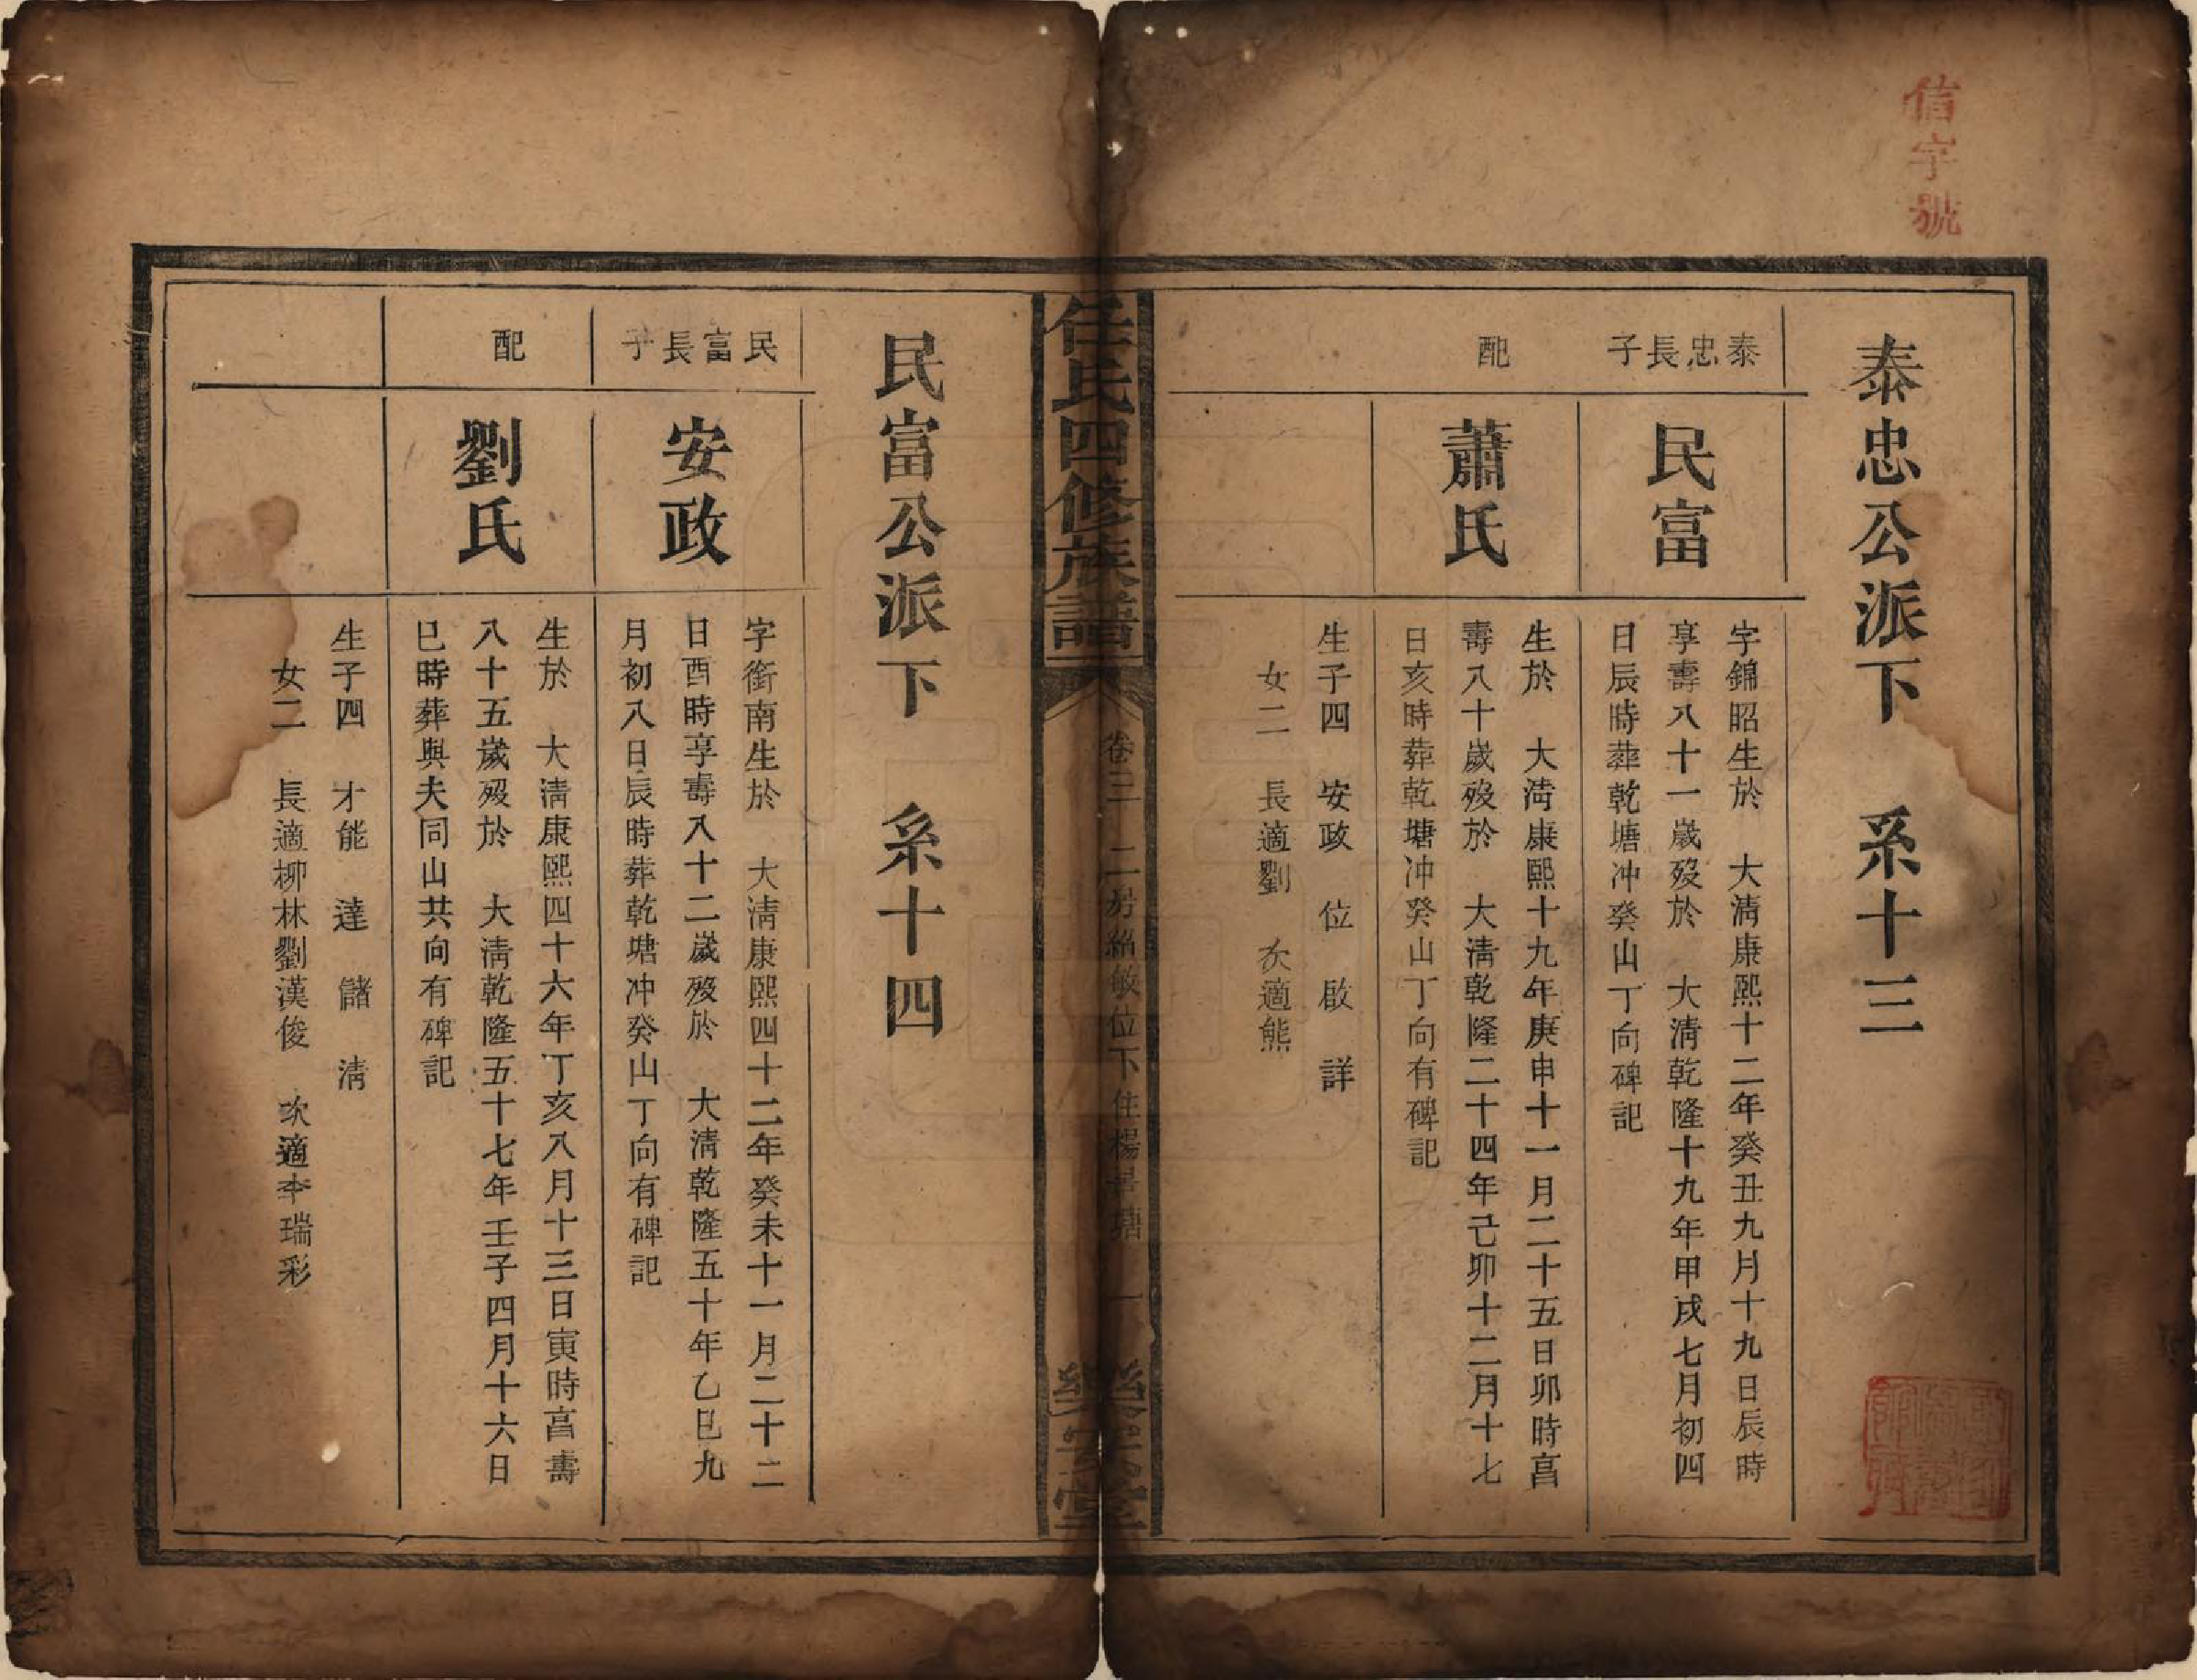 信字號
泰忠公派下　系十三
泰忠長子
民富
字錦昭生於　大淸康熙十二年癸丑九月十九日辰時
享壽八十一歲歿於　大淸乾隆十九年甲戌七月初四
日辰時葬乾塘冲癸山丁向有碑記
配
蕭氏
生於　大淸康熙十九年庚申十一月二十五日卯時亯
壽八十歲歿於　大淸乾隆二十四年己卯十二月十七
日亥時葬乾塘冲癸山丁向有碑記
生子四　安政　位　啟　詳
女二　長適劉　次適熊
任氏四修族譜
卷三　二房紹敏位下住楊＿塘　一
樂安堂
民富公派下　系十四
民富長子
安政
字銜南生於　大淸康熙四十二年癸未十一月二十二
日酉時享壽八十二歲歿於　大淸乾隆五十年乙巳九
月初八日辰時葬乾塘冲癸山丁向有碑記
配
劉氏
生於　大淸康熙四十六年丁亥八月十三日寅時亯壽
八十五歲歿於　大淸乾隆五十七年壬子四月十六日
巳時葬與夫同山共向有碑記
生子四　才能　達　儲　淸
女二　長適柳林劉漢俊　次適李瑞彩